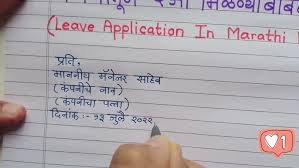 (Leave Application In Marathi
प्रति,
माननीय मॅनेजर साहेब
(कंपनीचे नाव)
(कंपनीचा पत्ता)
दिनांक :- १३ जुलै २०२२
1